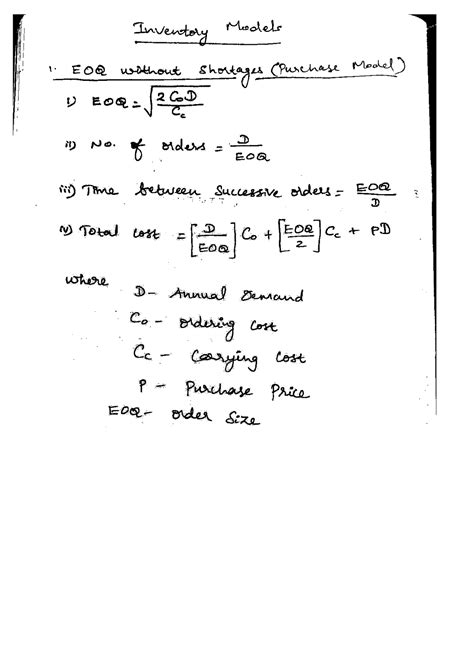 Inventory Models
1. EOQ without Shortages (Purchase Model)
i) EOQ = √(2 C₀ D / C_c)
ii) No. of orders = D / EOQ
iii) Time between successive orders = EOQ / D
iv) Total cost = [D / EOQ] C₀ + [EOQ / 2] C_c + PD
where
D - Annual Demand
C₀ - ordering cost
C_c - Carrying Cost
P - Purchase Price
EOQ - order Size